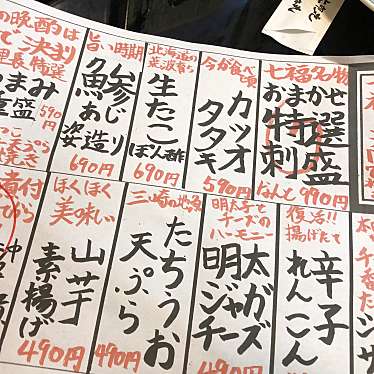 七福名物
おまかせ
特選
刺盛
なんと990円
今が食べ頃
カツオ
タタキ
590円
北海道の
荒波育ち
生たこ
ぽん酢
690円
旨い時期
鯵
あじ
姿造り
690円
の晩酌は
で決まり
理長特選
まみ
盛
590円
復活!!
揚げたて
辛子
れんこん
明太子と
チーズの
ハーモニー
明太
ジャガ
チーズ
490円
三崎の地魚
たちうお
天ぷら
490円
ほくほく
美味い
山芋
素揚げ
490円
煮付